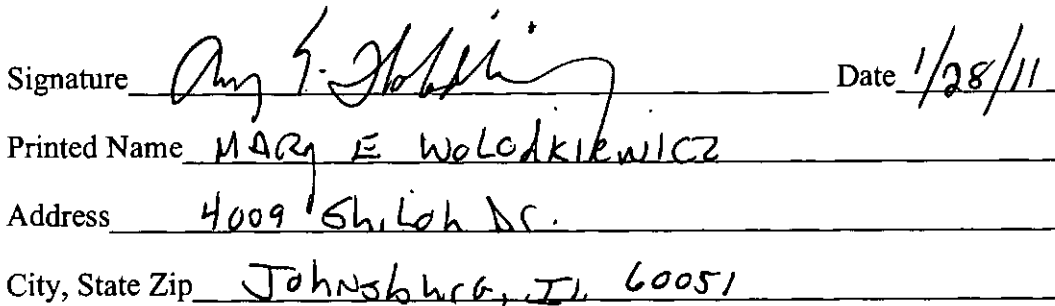 Signature Date 1/28/11
Printed Name MARY E WOLODKIEWICZ
Address 4009 Shiloh Dr.
City, State Zip Johnsburg, IL 60051